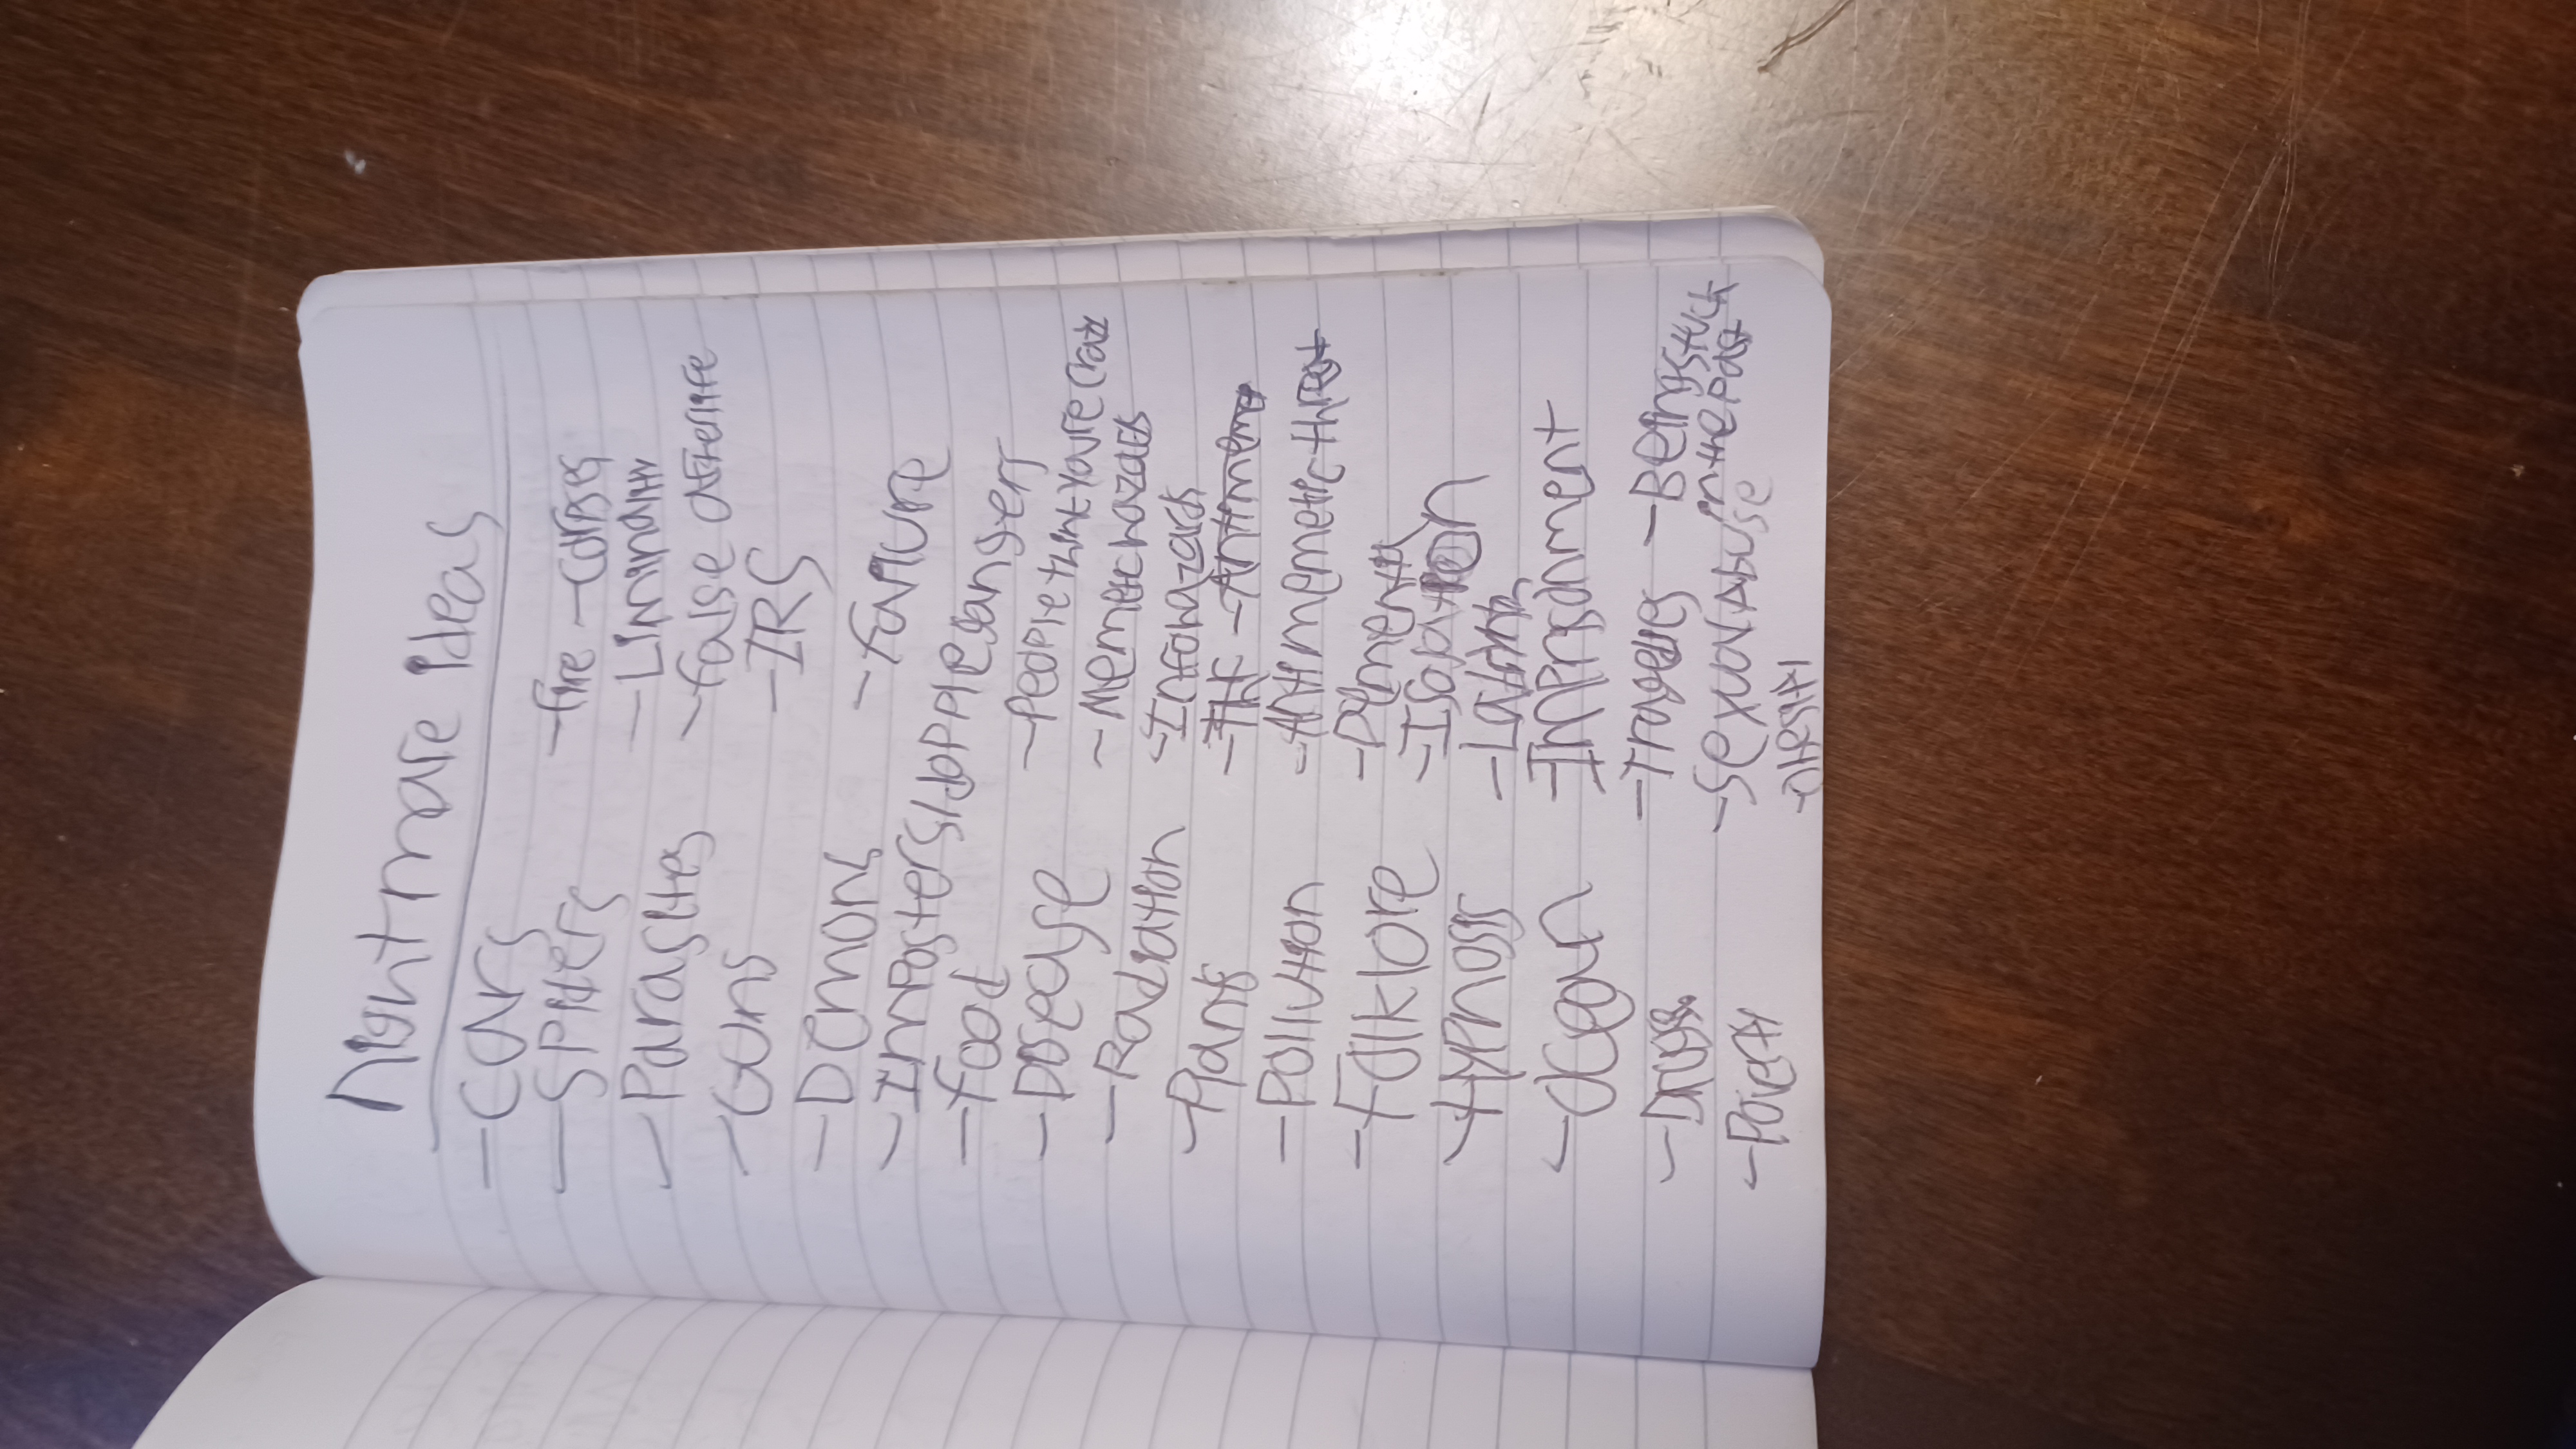 Nightmare ideas
- Cars
- Spiders
- Parasites
- Guns
- Demons
- Imposters/dopplegangers
- Food
- Disease
- Radiation
- Plants
- Pollution
- Folklore
- Hypnosis
- Ocean
- Drugs
- Poverty
- fire - corpses
- Liminality
- false afterlife
- IRS
- failure
- People think you're crazy
- Memetic hazards
- Infohazards
- Antimeme
- Antimemetic threat
- Dementia
- Isolation
- Imprisonment
- Tragedies - Being stuck
in the past
- Sexual Abuse
- obesity